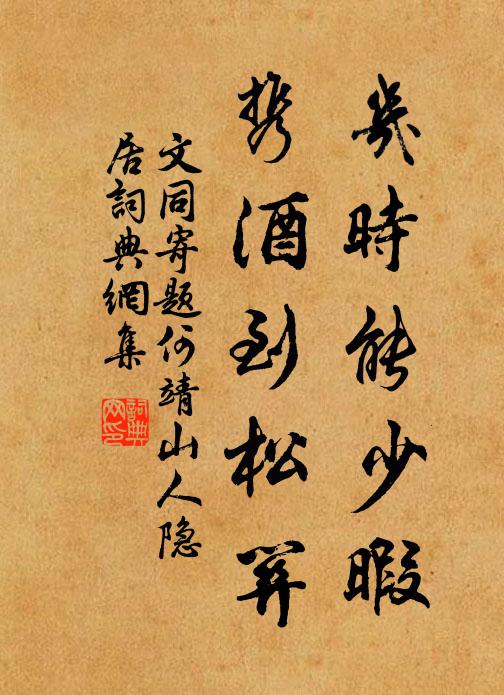 幾時能少暇
携酒到松關
文同寄題何靖山人隐
居詞典網集
詞典
网印